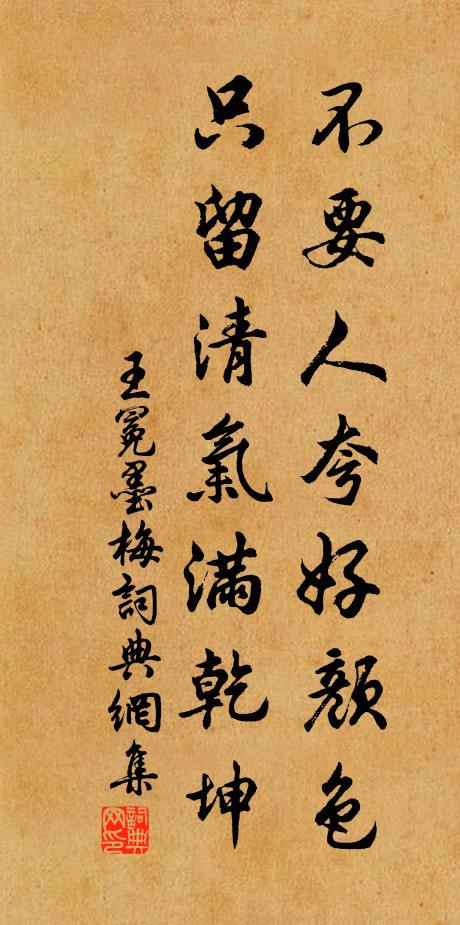 不要人夸好顏色
只留清氣滿乾坤
王冕墨梅詞典網集
詞典網印